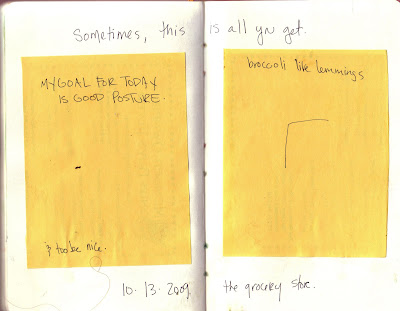 Sometimes, this is all yu get.
MY GOAL FOR TODAY
IS GOOD POSTURE.
& too be nice.
broccoli like lemmings
10.13.2009
the grocery store.